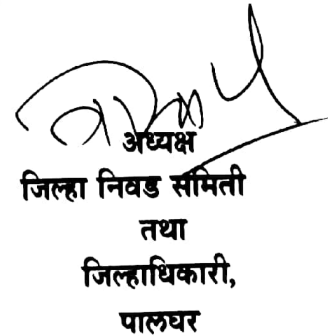 अध्यक्ष
जिल्हा निवड समिती
तथा
जिल्हाधिकारी,
पालघर